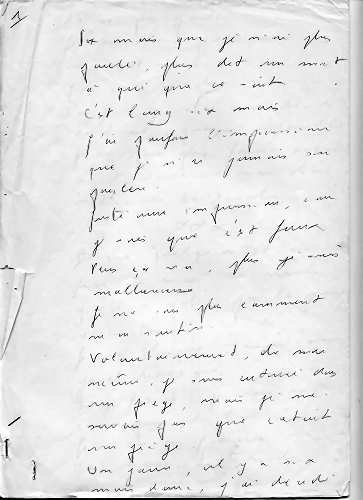 1
Six mois que je n'ai plus
parlé, plus dit un mot
à qui que ce soit
C'est long six mois
J'ai parfois l'impression
que je n'ai jamais su
parler.
juste une impression, car
je sais que c'est faux
Plus ça va, plus je suis
malheureuse
Je ne sais plus comment
m'en sortir
Volontairement, de moi
même, je suis entrée dans
un piège, mais je ne
savais pas que c'était
un piège
Un jour, il y a six
mois donc, j'ai décidé